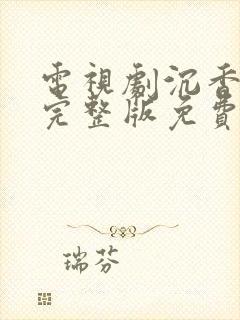 電視劇沉香
完整版免費
瑞芬